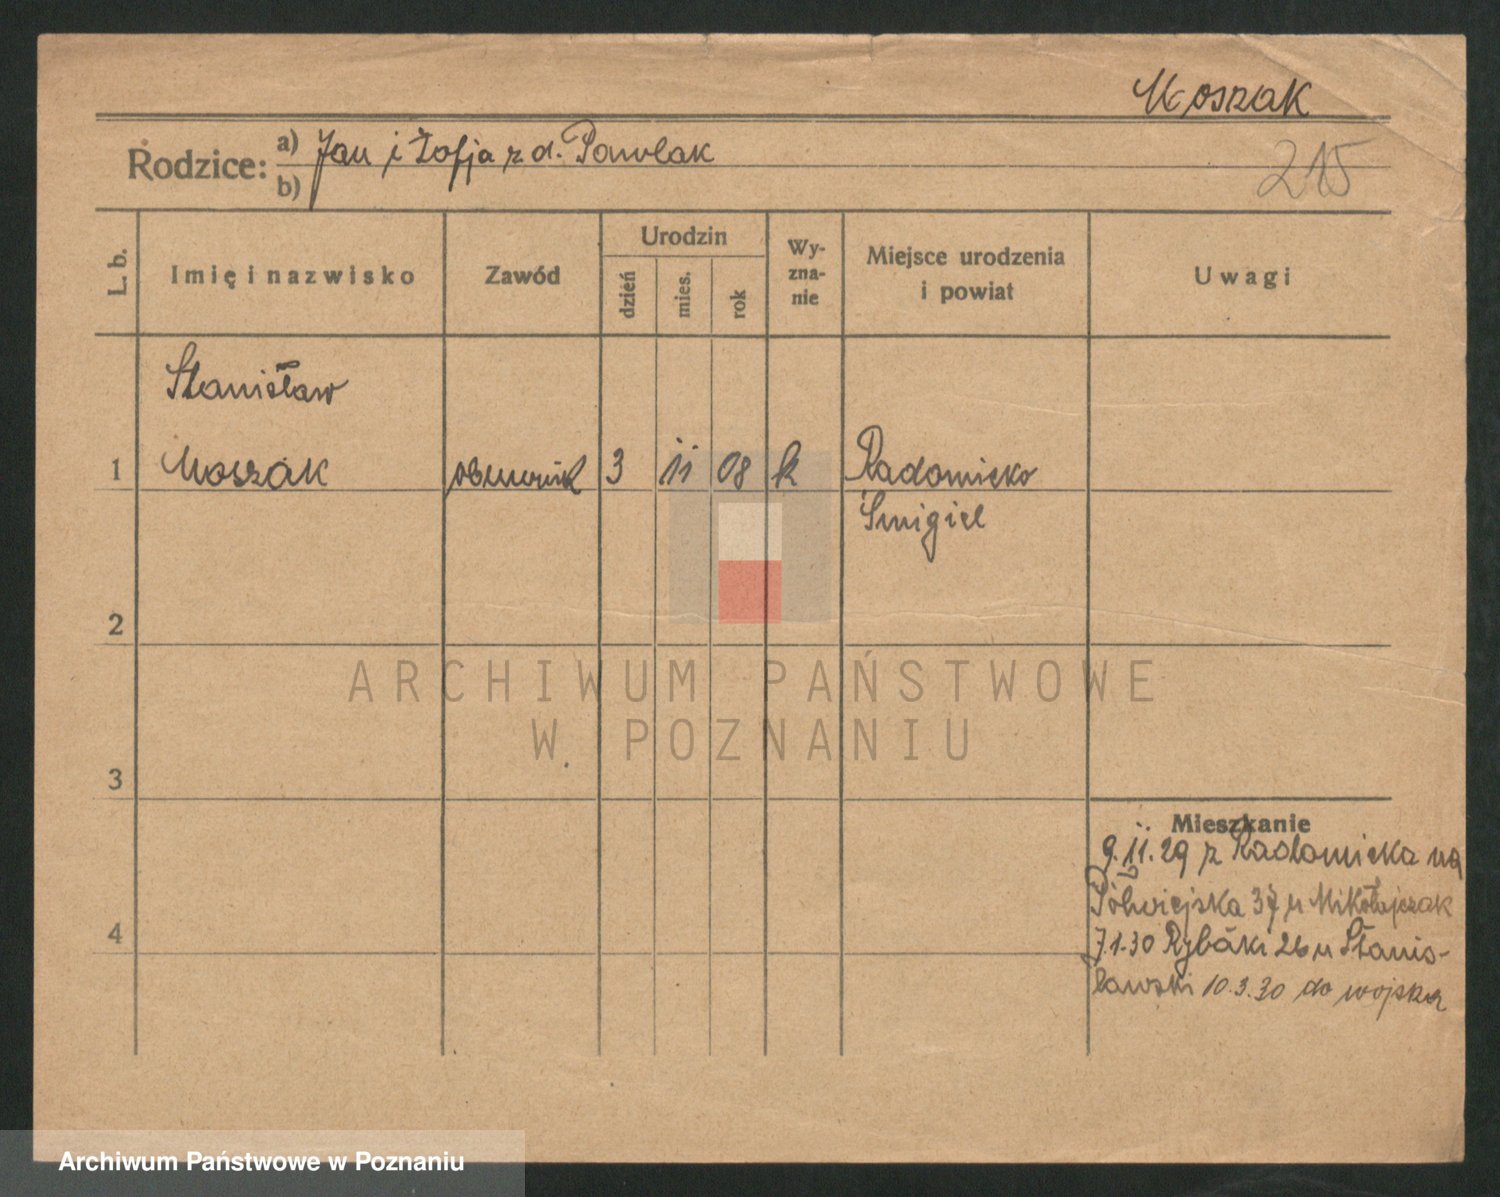 Moszak
Rodzice: a) Jan i Zofja z d. Pawlak
b)
215
L. b.
Imię i nazwisko
Zawód
Urodzin
dzień
mies.
rok
Wy-
zna-
nie
Miejsce urodzenia
i powiat
Uwagi
Stanisław
1 Moszak 3 11 08 k Radomicko
Śmigiel
2
3
4
Mieszkanie
9.11.29 z Radomicka na
Półwiejska 37 u Mikołajczak
7.1.30 Rybaki 26 u Stanis-
ławski 10.3.30 do wojska
ARCHIWUM PAŃSTWOWE
W POZNANIU
Archiwum Państwowe w Poznaniu